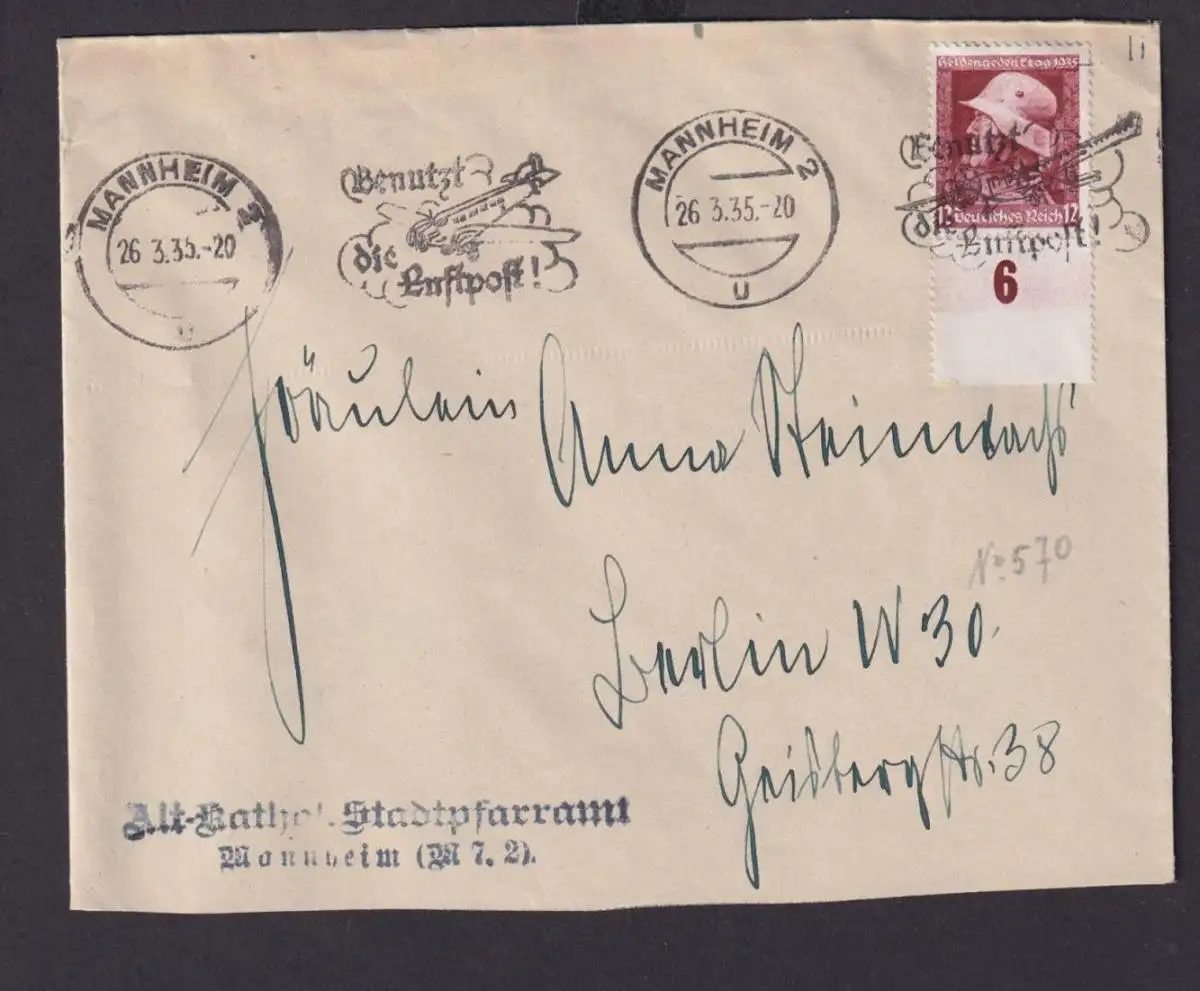 MANNHEIM 2
26 3.35.-20
u
Benutzt
die
Luftpost!
MANNHEIM 2
26 3.35.-20
u
Heldengedenktag 1935
Benutzt
12 Deutsches Reich 12
die
Luftpost!
6
Fräulein Anna Steimbach
No 570
Berlin W 30.
Geisbergstr. 38
Alt-Kathol. Stadtpfarramt
Mannheim (M 7, 2).